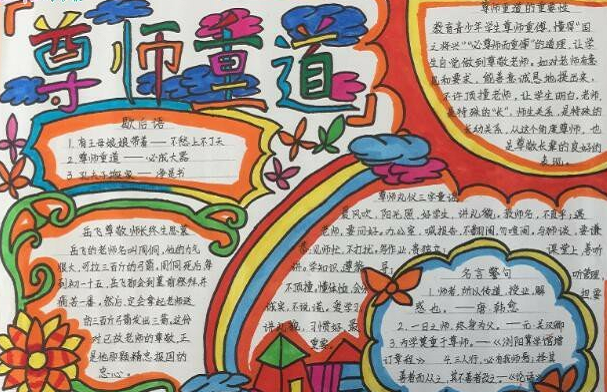 「尊师重道」
歇后语
1. 有王母娘娘带着——不愁上不了天
2. 尊师重道——必成大器
3. 孔夫子搬家——净是书
岳飞尊敬师长终生思蒙
岳飞的老师名叫周侗,他的力气
很大,可拉三百斤的弓箭,周侗死后,每
到初一十五,岳飞都会到墓前祭拜,并
痛苦一番,然后,定会拿起老师送
的三百斤弓箭发出三箭,这份
对已故老师的尊敬,正
是他那颗精忠报国的
忠心。
尊师重道的重要性
教育青少年学生尊师重傅,懂得“国
之将兴”“必尊师而重傅”的道理,让学
生自觉做到尊敬老师,如对老师有意
见和要求,能善意诚恳地提出来,
不许顶撞老师,让学生明白,老师,
是特殊的“长”,师生关系,是特殊的
长幼关系,从这个角度尊师,也
是尊敬长辈的良好的
表现。
尊师礼仪三字童谣
夏风吹,阳光照,好学生,讲礼貌,
老师,要问好,办公室,喊报告,不翻闹,勿喧闹,与师谈,要谦
课堂上,善听
听管理
不顶撞,懂体恤,
诚实,不说谎,
讲礼貌,习惯好,最
重要。
名言警句
1. 师者,所以传道,授业,解
惑也。——唐·韩愈
2. 一日之师,终身为父。——元·关汉卿
3. 为学莫重于尊师。——《浏阳算学馆增
订章程》 4. 三人行,必有我师焉;择其
善者而从之,其不善者改之。——《论语》